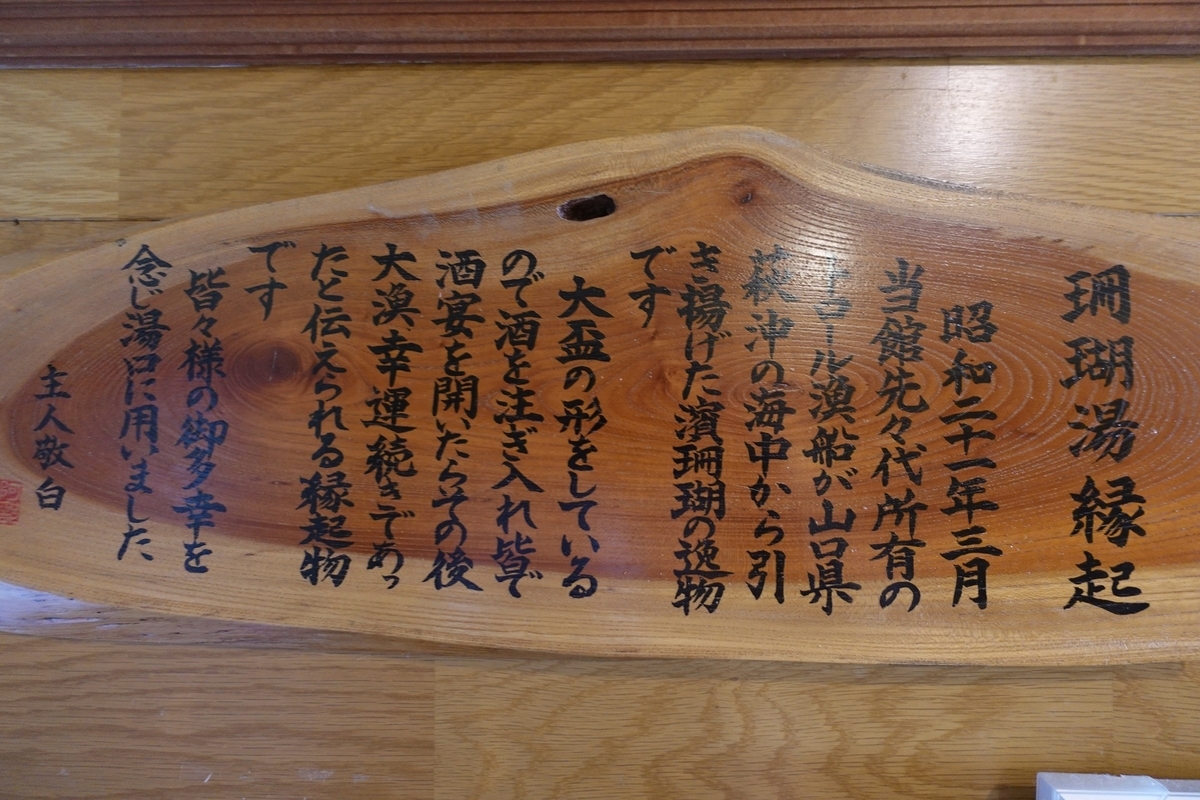 珊瑚湯縁起
昭和二十一年三月
当館先々代所有の
トロール漁船が山口県
萩沖の海中から引
き揚げた濱珊瑚の逸物
です
大盃の形をしている
ので酒を注ぎ入れ皆で
酒宴を開いたらその後
大漁幸運続きであっ
たと伝えられる縁起物
です
皆々様の御多幸を
念じ湯口に用いました
主人敬白